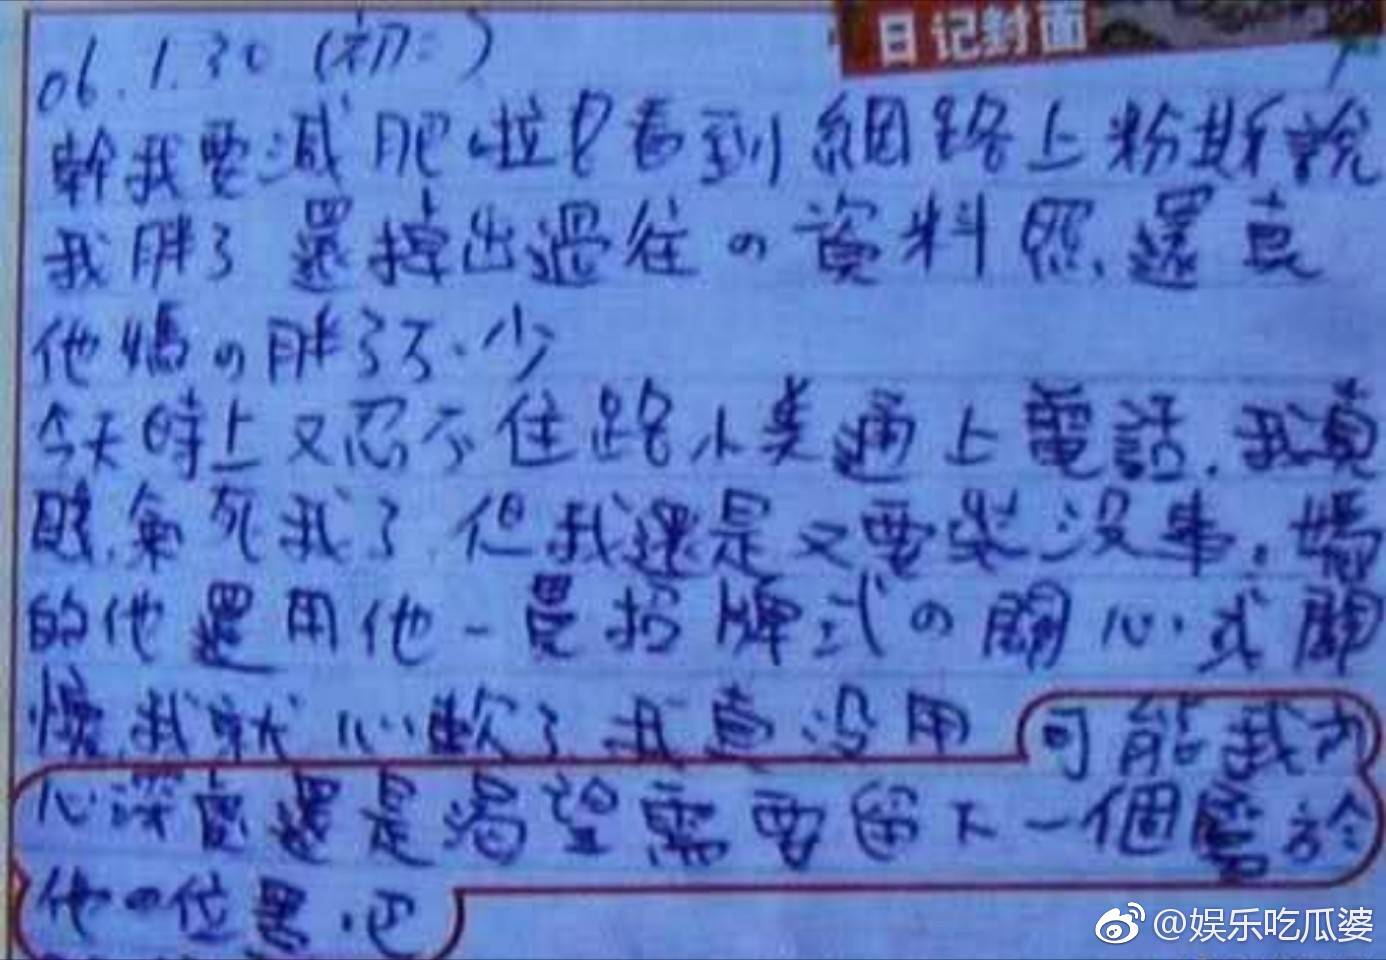 日记封面
06.1.30 (初二)
幹我要減肥啦!看到網路上粉斯說
我胖了 還掉出過往の資料照,還真
他媽の胖了不少
今天時上又忍不住路小美通上電話,我真
賤,氣死我了,但我還是又要裝沒事,媽
的他還用他一貫招牌式の關心式關
懷,我就心軟了,我真沒用 可能我內
心深處還是渴望需要留下一個屬於
他の位置吧
@娱乐吃瓜婆